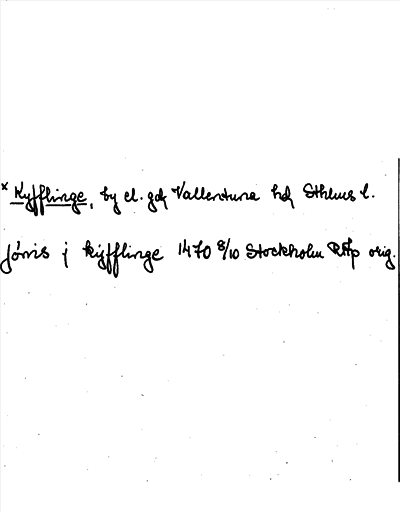 * Kyfflinge, by el. gd, Vallentuna hd, Sthlms l.
Jønis j kyfflinge 1470 8/10 Stockholm RAp orig.